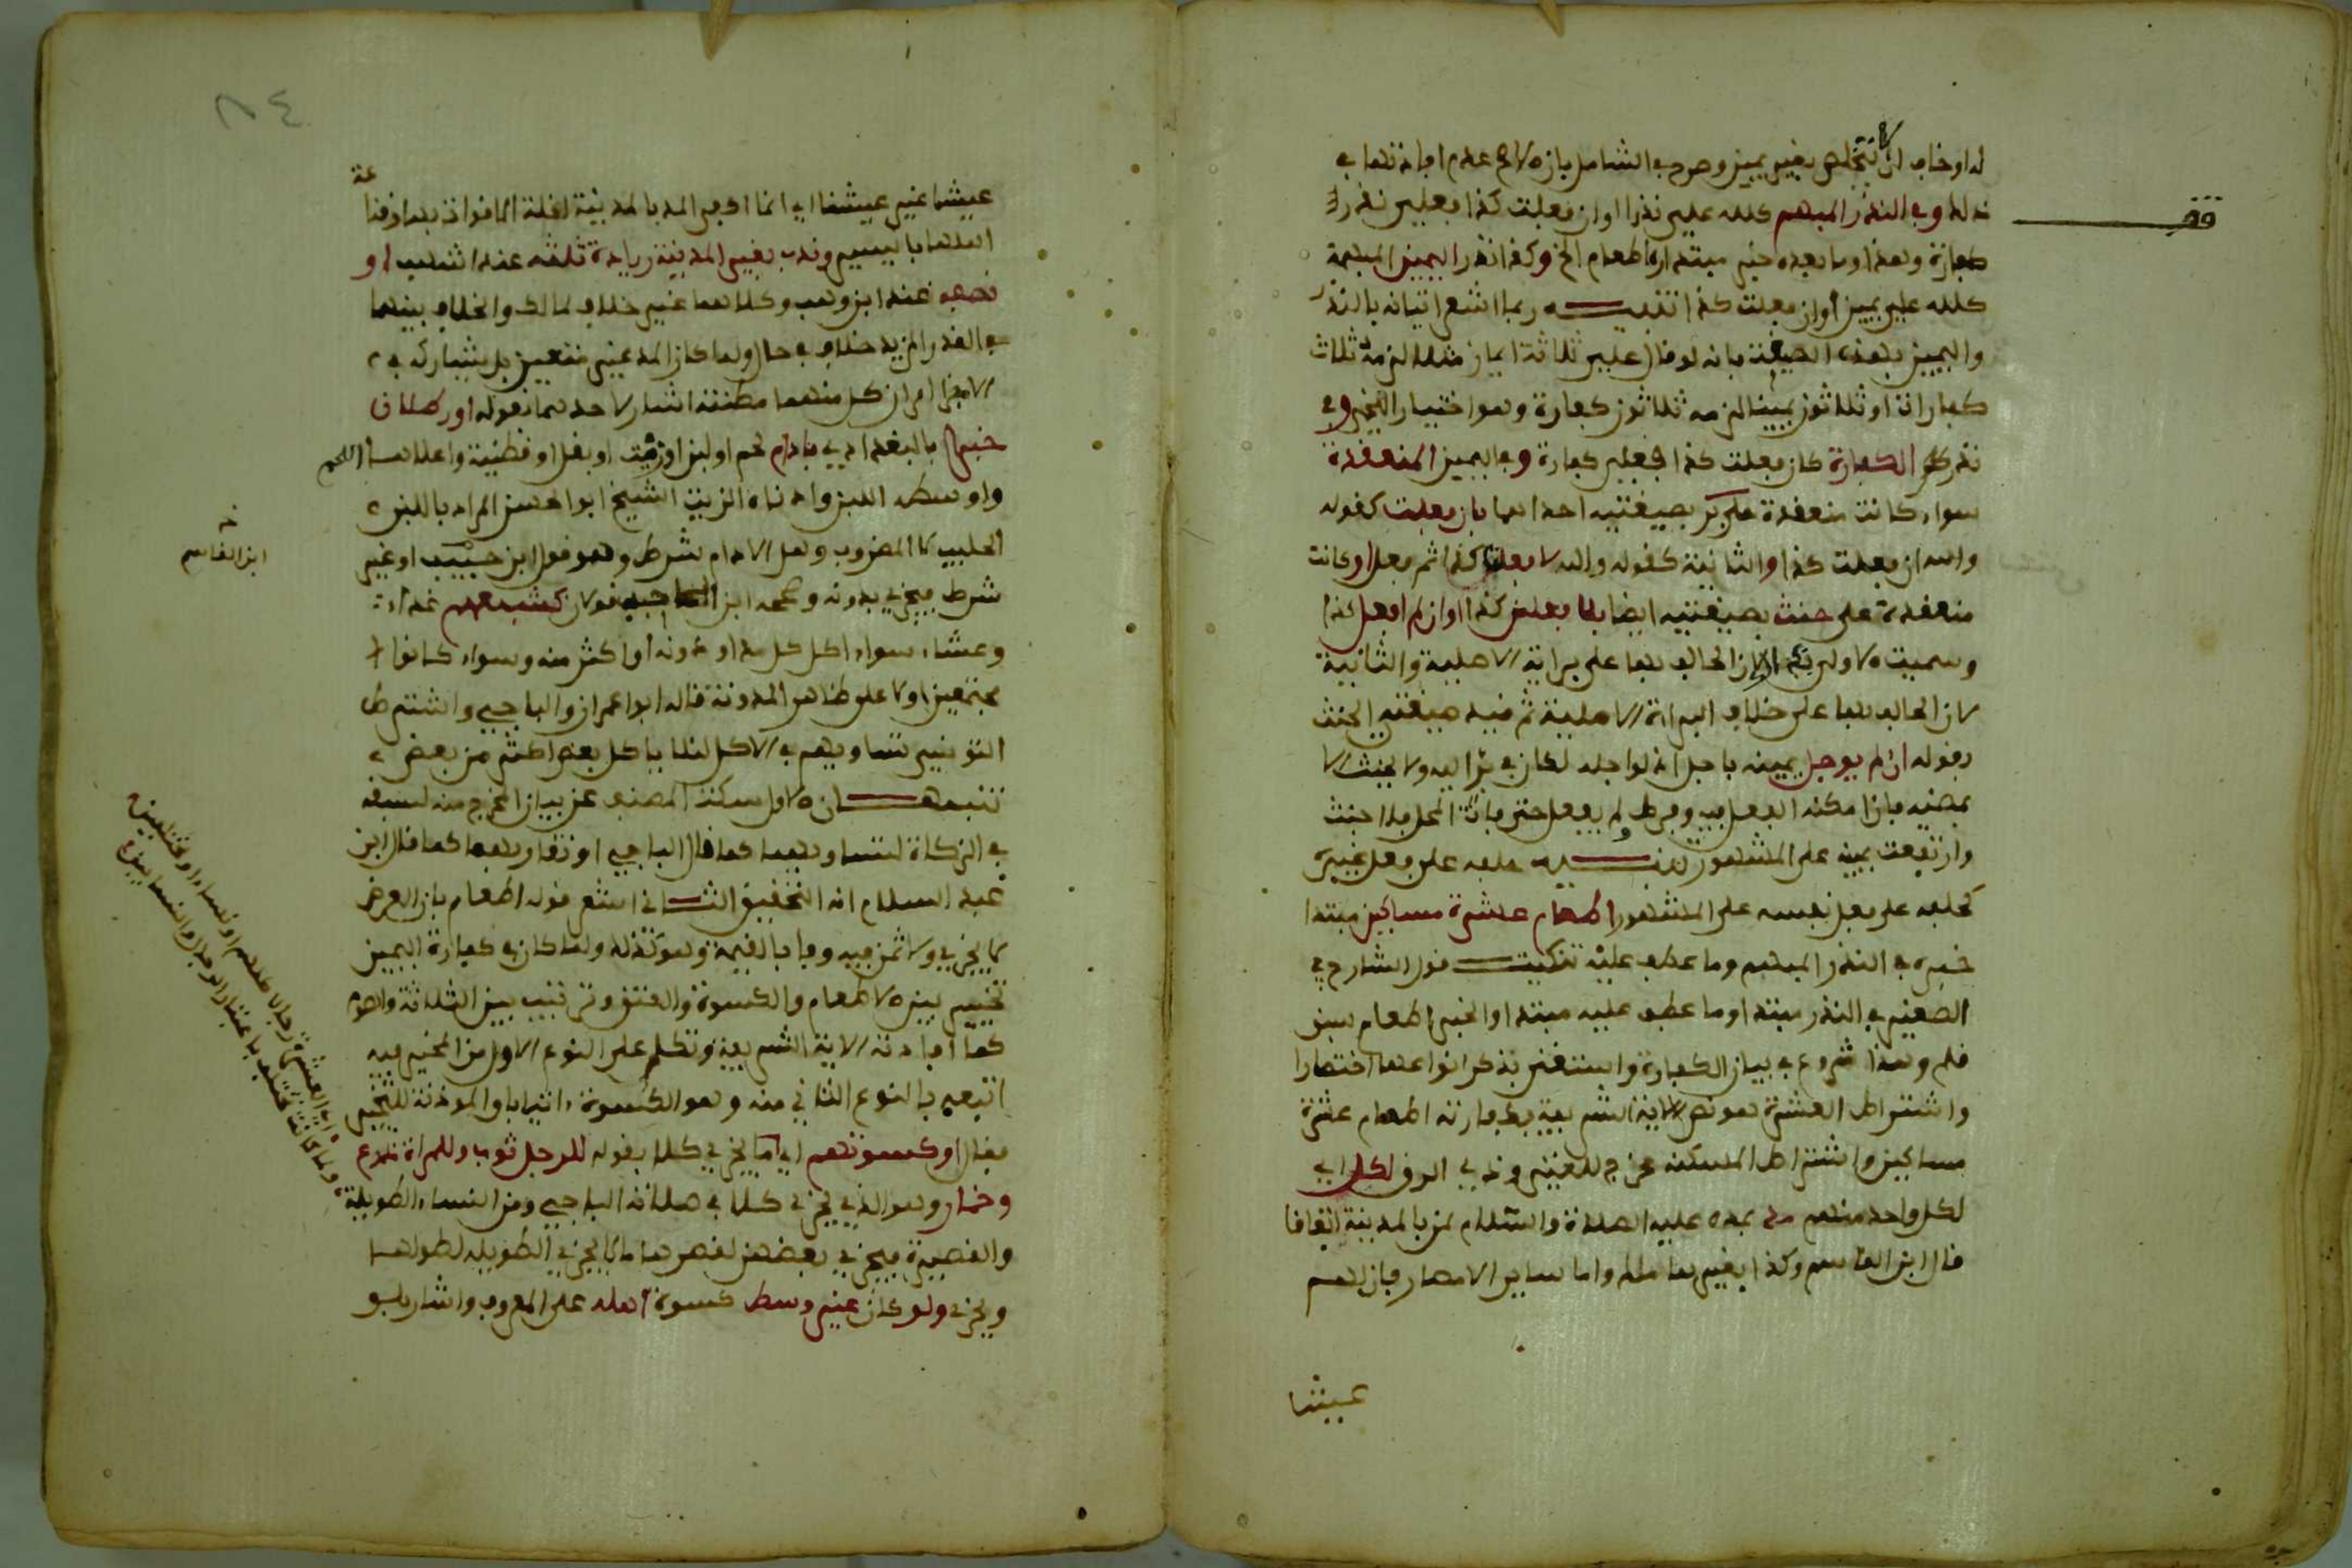 له او خاف ان لا يتخلص بغير يمين وصرح في الشامل بان الاصح عدم افادتها في
ذلك وفي النذر المبهم كلله علي نذرا او ان فعلت كذا فعلي نذر
كفارة وهذا وما بعده خبر مبتداه اطعام الخ وكذا نذر اليمين المبهمة
كلله علي يمين او ان فعلت كذا تنبيه ربما اشعر اتيانه بالنذر
واليمين بهذه الصيغة بانه لو قال علي ثلاثة ايمان مثلا لزمه ثلاث
كفارات او ثلاثون يمينا لزمه ثلاثون كفارة وهو اختيار اللخمي وفي
نذر الكفارة كان فعلت كذا فعلي كفارة وفي اليمين المنعقدة
سواء كانت منعقدة على بر بصيغتيه احداهما بان فعلت كقوله
والله ان فعلت كذا والثانية كقوله والله لا فعلت كذا ثم فعل او كانت
منعقدة على حنث بصيغتيه ايضا بلا فعلن كذا او ان لم افعل كذا
وسميت الاولى بر لان الحالف بها على براءة الاصلية والثانية
لان الحالف بها على خلاف البراءة الاصلية ثم قيد صيغتي الحنث
بقوله ان لم يوجل يمينه باجل اذ لو اجله لكان في بر اليه ولا يحنث الا
بمضيه فان امكنه الفعل فيه وفرط ولم يفعل حتى فات المحل فلا حنث
وارتفعت يمينه على المشهور تنبيه حلفه على فعل غيره
كحلفه على فعل نفسه على المشهور اطعام عشرة مساكين مبتدا
خبره في النذر المبهم وما عطف عليه تنكيت قول الشارح في
الصغير في النذر مبتدا وما عطف عليه مبتدا والخبر اطعام سبق
قلم وهذا شروع في بيان الكفارة واستغنى بذكر انواعها اختصارا
واشتراط العشرة هو نص الاية الشريفة فكفارته اطعام عشرة
مساكين واشتراط المسكنة مخرج للغني وذي الرق لكل اي
لكل واحد منهم مد بمده عليه الصلاة والسلام لمن بالمدينة اتفاقا
قال ابن القاسم وكذا بغيرها مالك واما ساير الامصار فان لهم
عيشا
عيشا غير عيشنا اي انما اجزى المد بالمدينة لقلة الاقوات بها وقناعة
اهلها باليسير وندب بغير المدينة زيادة ثلثه عند اشهب او
نصفه عند ابن وهب وكلاهما غير خلاف لمالك والخلاف بينهما
في القدر المزيد خلاف في حال ولما كان المد غير متعين بل يشاركه في
الاجزا امران كل منهما مظنته اشار لاحدهما بقوله او رطلان
خبزا بالبغدادي بادام لحم او لبن او زيت او بقل او قطنية واعلاها اللحم
واوسطه اللبن وادناه الزيت الشيخ ابو الحسن المراد باللبن
الحليب لا المضروب وهل الادام شرط وهو قول ابن حبيب او غير
شرط فيجزي بدونه وصححه ابن الحاجب قولان كشبعهم غداء
وعشاء سواء اكل كل مد او دونه او اكثر منه وسواء كانوا
مجتمعين او لا على ظاهر المدونة قاله ابو عمران والباجي واشترط
التونسي تساويهم في الاكل لئلا ياكل بعض اكثر من بعض
تنبيهان الاول سكت المصنف عن بيان المخرج منه لسبقه
في الزكاة لتساويهما كما قال الباجي او تقاربهما كما قال ابن
عبد السلام انه التحقيق الثاني اشعر قوله اطعام بان العرض
لا يجزي ولا ثمن فيه وفا بالقيمة وهو كذلك ولما كان في كفارة اليمين
تخيير بين الاطعام والكسوة والعتق وترتيب بين الثلاثة والصوم
كما افادته الاية الشريفة وتكلم على النوع الاول من المخير فيه
اتبعه بالنوع الثاني منه وهو الكسوة اتيا باو الموذنة للتخيير
فقال او كسوتهم اي ما يجزي كلا بقوله للرجل ثوب وللمراة درع
وخمار وهو الذي يجزي كلا في صلاته الباجي ومن النساء الطويلة
والقصيرة فيجزي بعضهن لقصرها ما لا يجزي الطويلة لطولها
ويجزي ولو كان غير وسط كسوة اهله على المعروف واشار بلو
ابن القاسم